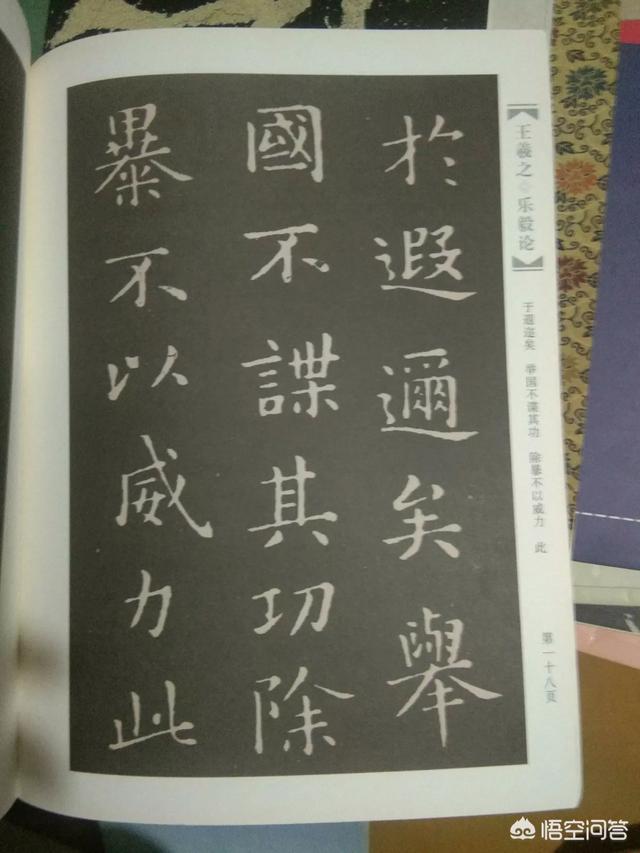 王羲之 乐毅论
于遐迩矣 举国不谋其功 除暴不以威力 此
第一十八页
於遐邇矣舉
國不謀其功除
暴不以威力此
悟空问答